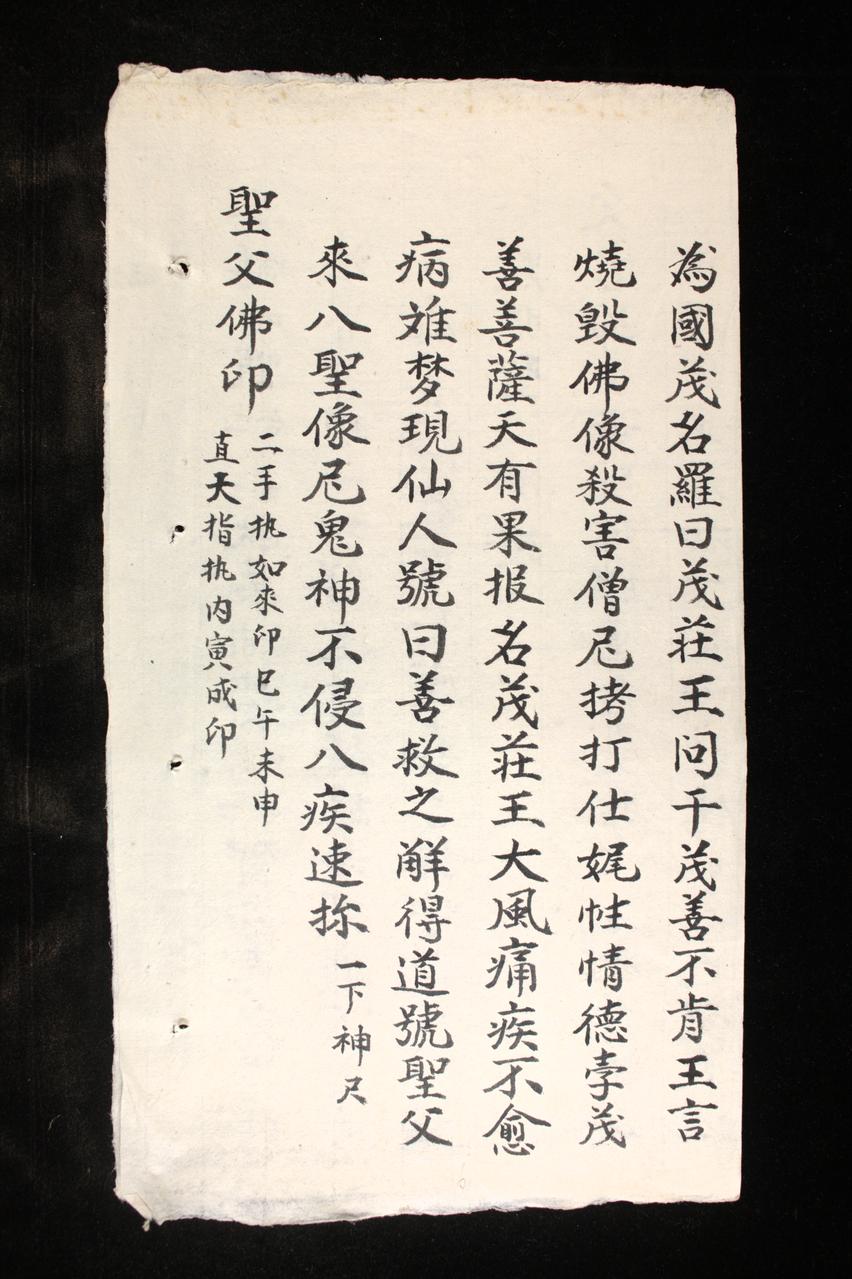 為國茂名羅曰茂莊王问干茂善不肯王言
燒毀佛像殺害僧尼拷打仕娓性情德孛茂
善善薩天有果报名茂莊王大風痛疾不愈
病难梦現仙人號曰善救之觧得道號聖父
來八聖像尼鬼神不侵八疾速 一下神尺
聖父佛印 二手执如來印巳午未申
直天指执内寅成印